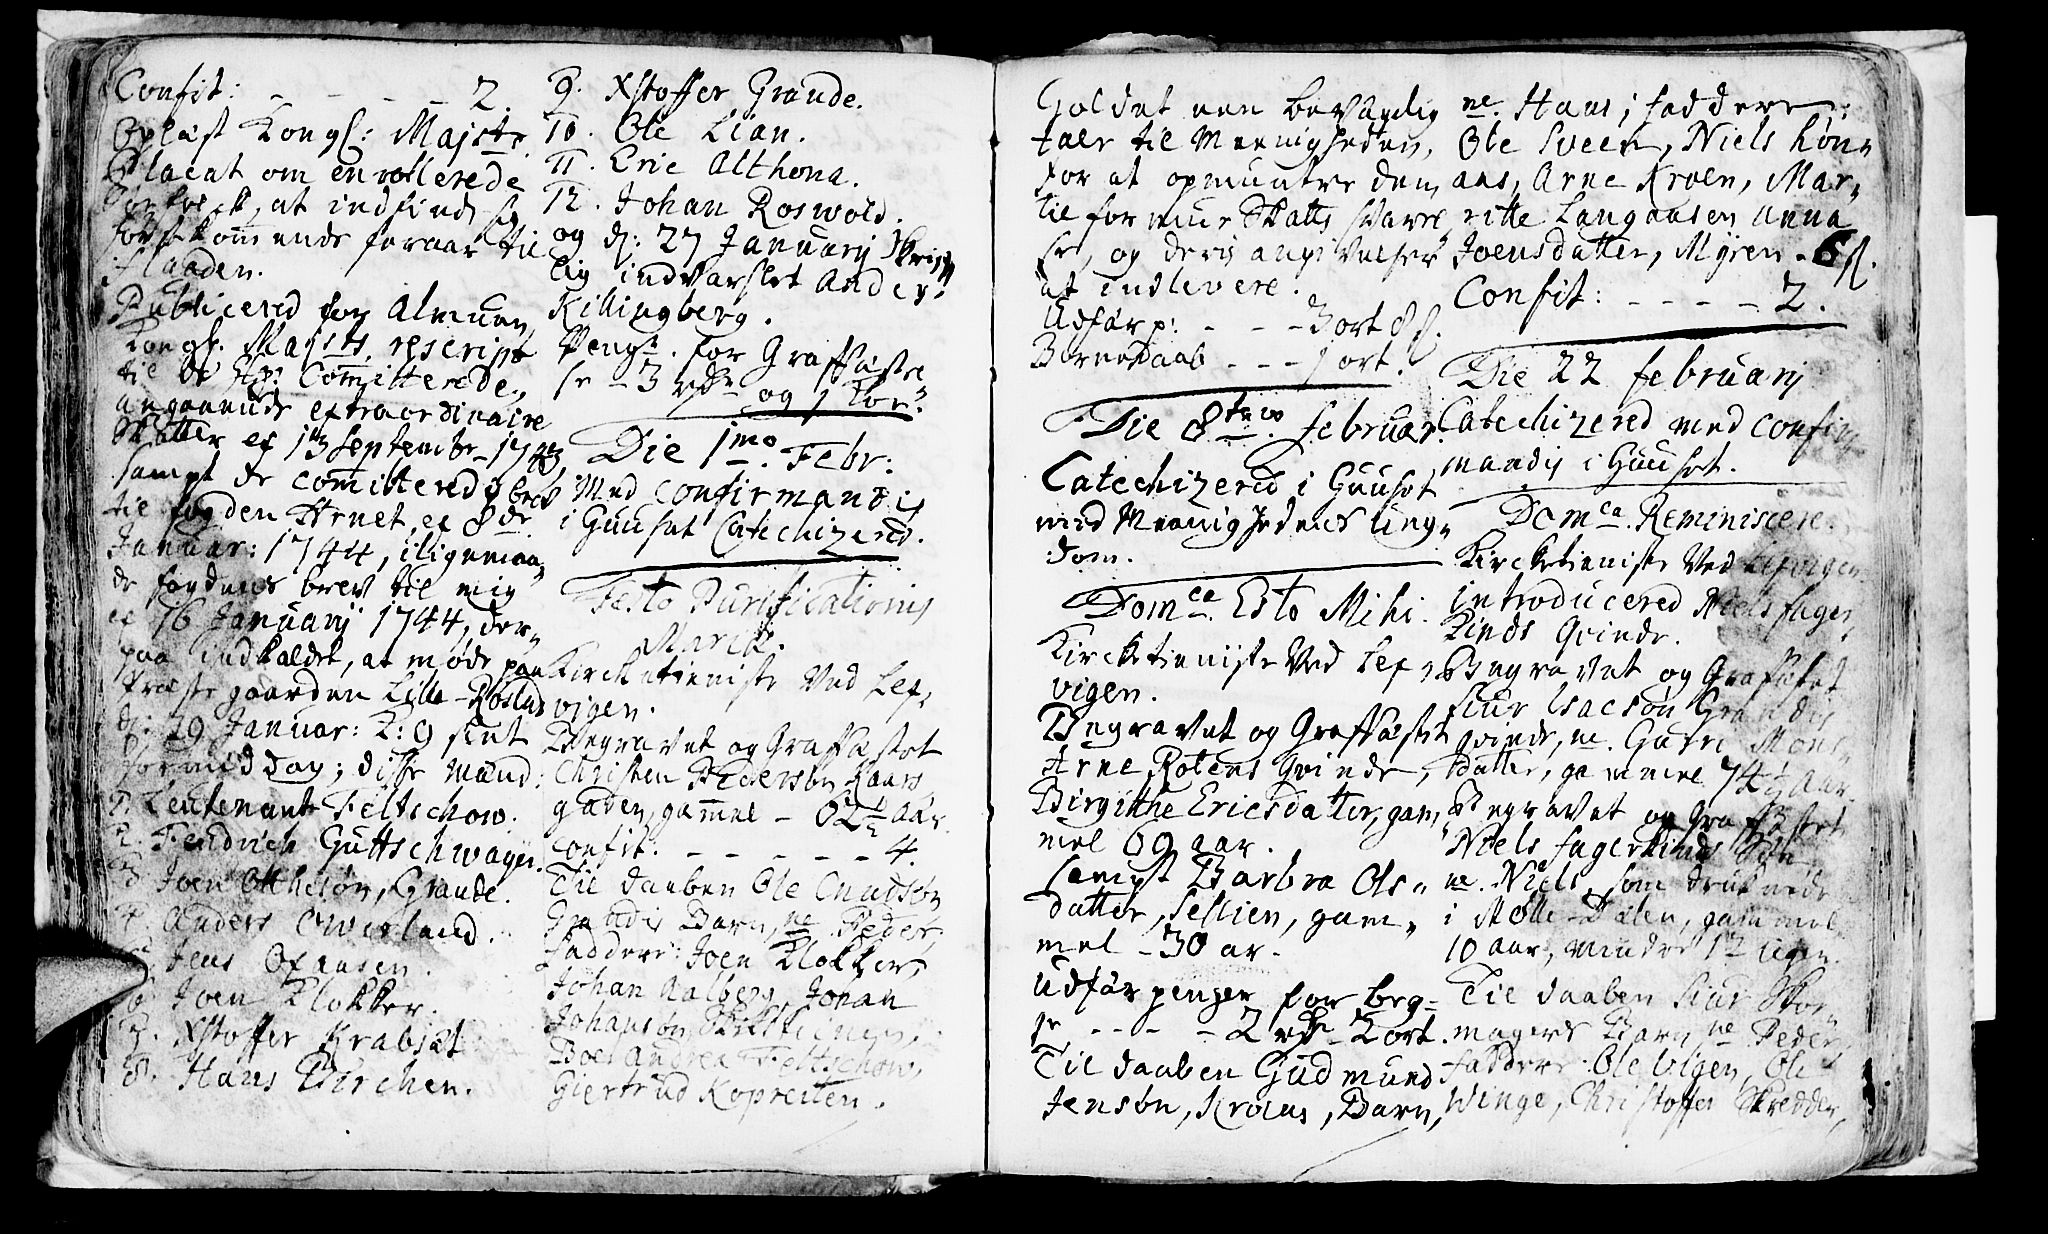 Confit: - - - - - 2.
Oplæst Kongl: Majsts
Placat om enrollerede
at indfinde sig
førstkommende foraar til
flaaden.
Publicered for Almuen,
Kongl: Majsts rescript
til de Committerede,
angaaende extraordinaire
Skatter af 13 Septembr. 1743,
sampt de committeredes brev
til fogden Hrnet af 8de
Januar: 1744, iligemaa-
de fogdens brev til mig
af 16 Januarij 1744, der-
paa indkaldet, at møde paa
Præstegaarden Lille-Roslad
d: 29 Januar: Kl: 9 slet
formiddag; disse Mænd:
1. Leutenant Feltschow.
2. Fendrich Guttschwager.
3. Joen Otthesøn, Grande.
4. Anders Owerland.
5. Jens Opausen.
6. Joen Klokker.
7. Xstoffer Krabsæt
8. Hans Birchen.
9. Xstoffer Grande.
10. Ole Lian.
11. Eric Althona.
12. Johan Roswold.
og d: 27 Januarij Skrift-
lig indvarslet Anders
Killingberg.
Penge for Graffæste
se - 3 rdr og 1 kor:
Die 1mo Febr:
Med confirmandis
i Guuset Catechizered.
Festo Purificationis
Mariæ.
Kirketieniste Ved Lex-
vigen.
Begravet og Graffæstet
Christen Pedersøn Kaars
gaden, gammel - 62½ Aar.
Confit: - - - - - - 4.
Til daaben Ole Cnudsøn
Grandis Barn, ne. Peder,
faddere: Joen Klokker,
Johan Aalberg, Johan
Johansøn,
Boel Andrea Feltschow,
Giertrud Kopreiten.
Holdet een bevægelig
tale til Meenigheden,
for at opmuntre dem
til formue Skatts
se, og deris angivelser
at indlevere.
Udfør p: - - - 3 ort 8 s.
Bernedaab - - - 1 ort.
Die 8tavo Februar.
Catechizered i Guuset
med Meenighedens ung-
dom.
Domca Esto Mihi.
Kirketieniste Ved Lex-
vigen.
Begravet og Graffæstet
Arne Rotens Qvinde,
Birgitthe Ericsdatter, gam-
mel 69 aar.
sampt Barbra Ols-
datter, Sellien, gam-
mel - 30 ar.
Udfør penger for beg-
ge - - - - 2 rdr 2 ort.
Til daaben Gudmund
Jensøn, Kroens, Barn,
ne. Hans; faddere:
Ole Sveen, Niels Høn-
aas, Arne Kroen, Mar-
ritte Langaasen Anna
Joensdatter, Myren - 6 s.
Confit: - - - - 2.
Die 22 Februarij
Catechizered med confir-
mandis i Guuset.
Domca Reminiscere.
Kirketieniste Ved Lexvigen.
introducered Niels Fager-
linds Qvinde.
Begravet og Graffæstet
Siur Isacsøn Grandis
qvinde, ne. Guru Mons-
datter, gammel 74½ Aar.
Begravet og Graffæstet
Niels Fagerlinds Søn
ne. Niels, som druknede
i Mølle-Dalen, gammel
10 aar, mindre 12 uger.
Til daaben Siur Skoe-
magers Barn ne. Peder
faddere: Ole Vigen, Ole
Winge, Christoffer Skredder,